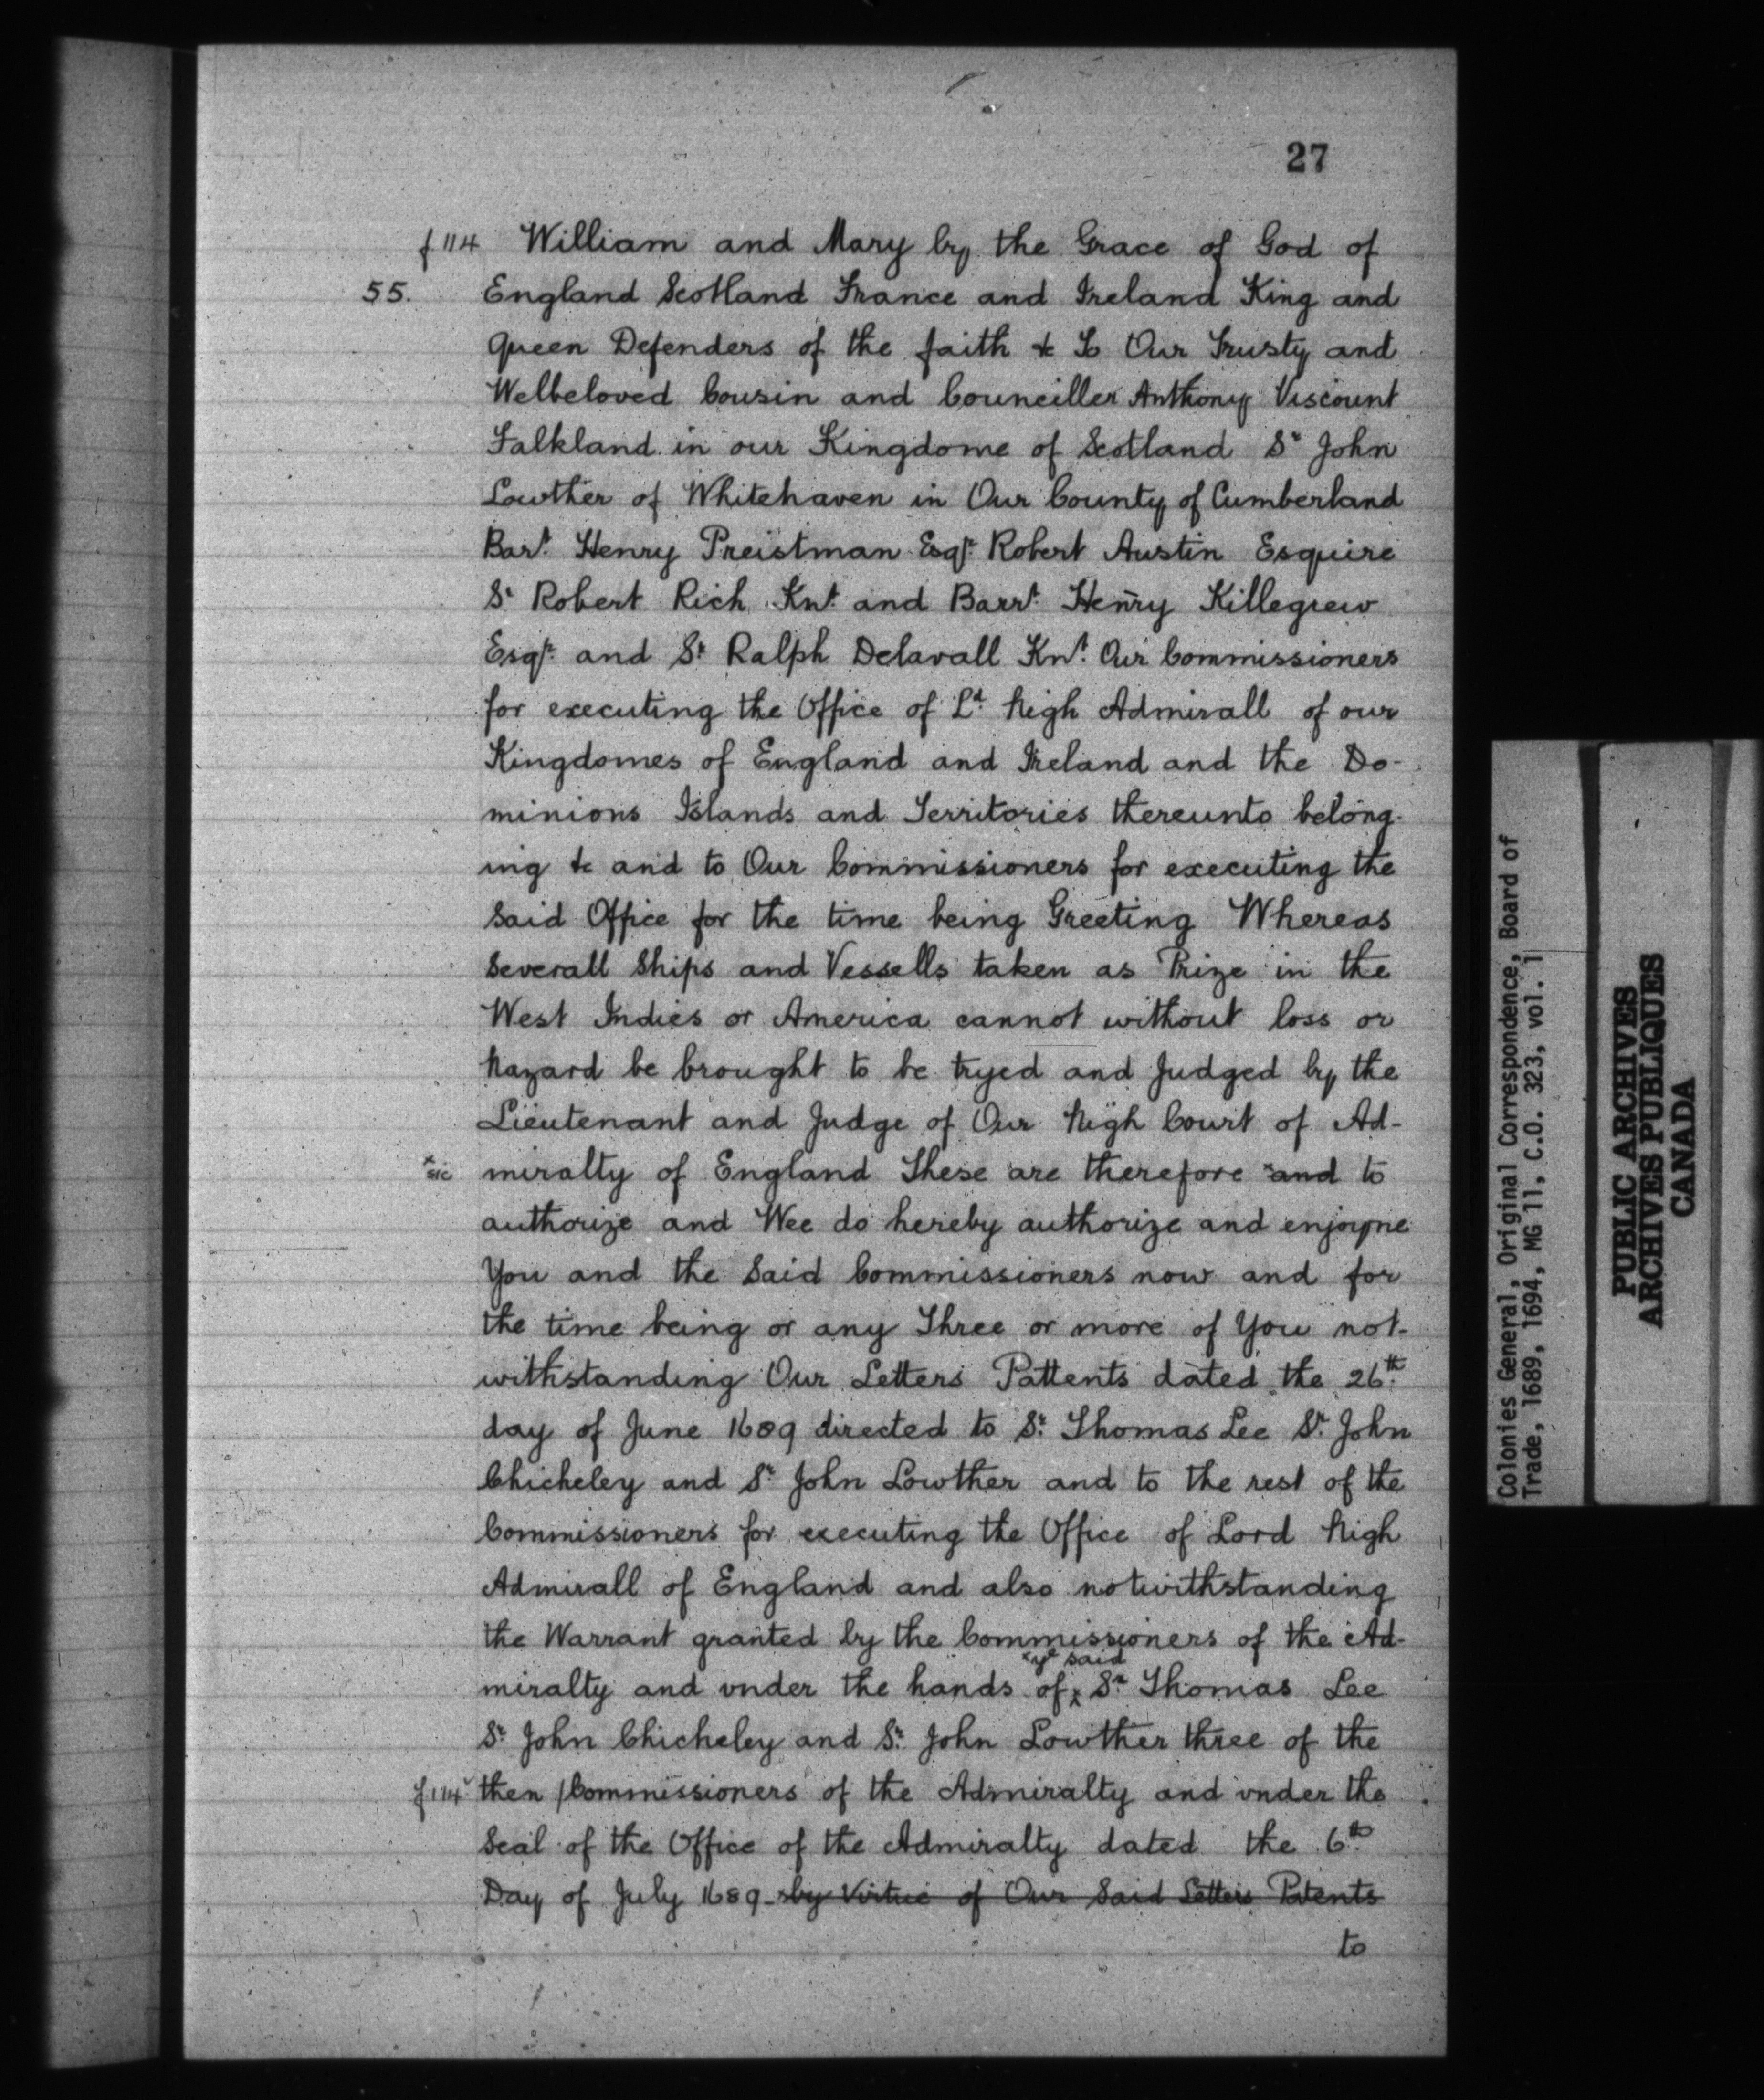 27
f 114 William and Mary by the Grace of God of
55. England Scotland France and Ireland King and
Queen Defenders of the faith &c To Our Trusty and
Welbeloved Cousin and Counciller Anthony Viscount
Falkland in our Kingdome of Scotland Sr John
Lowther of Whitehaven in Our County of Cumberland
Bart. Henry Preistman Esqr. Robert Austin Esquire
Sr Robert Rich Knt. and Barrt. Henry Killegrew
Esqr. and Sr. Ralph Delavall Knt. Our Commissioners
for executing the Office of Ld. high Admirall of our
Kingdomes of England and Ireland and the Do-
minions Islands and Territories thereunto belong-
ing &c and to Our Commissioners for executing the
Said Office for the time being Greeting Whereas
Severall Ships and Vessells taken as Prize in the
West Indies or America cannot without loss or
hazard be brought to be tryed and Judged by the
Lieutenant and Judge of Our high Court of Ad-
x sic miralty of England These are therefore x and to
authorize and Wee do hereby authorize and enjoyne
You and the Said Commissioners now and for
the time being or any Three or more of You not-
withstanding Our Letters Pattents dated the 26th.
day of June 1689 directed to Sr. Thomas Lee Sr. John
Chicheley and Sr. John Lowther and to the rest of the
Commissioners for executing the Office of Lord high
Admirall of England and also notwithstanding
the Warrant granted by the Commissioners of the Ad-
x ye said
miralty and vnder the hands of x Sr. Thomas Lee
Sr. John Chicheley and Sr. John Lowther three of the
f 114v then /Commissioners of the Admiralty and vnder the
Seal of the Office of the Admiralty dated the 6th.
Day of July 1689 by Virtue of Our Said Letters Patents
to
Colonies General, Original Correspondence, Board of
Trade, 1689, 1694, MG 11, C.O. 323, vol. 1
PUBLIC ARCHIVES
ARCHIVES PUBLIQUES
CANADA